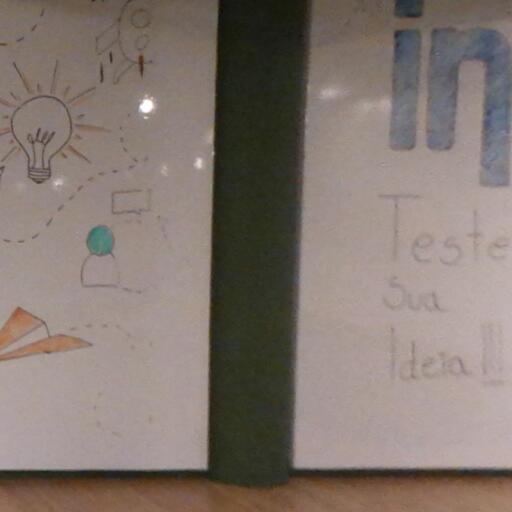 in
Teste
Sua
Ideia!!!